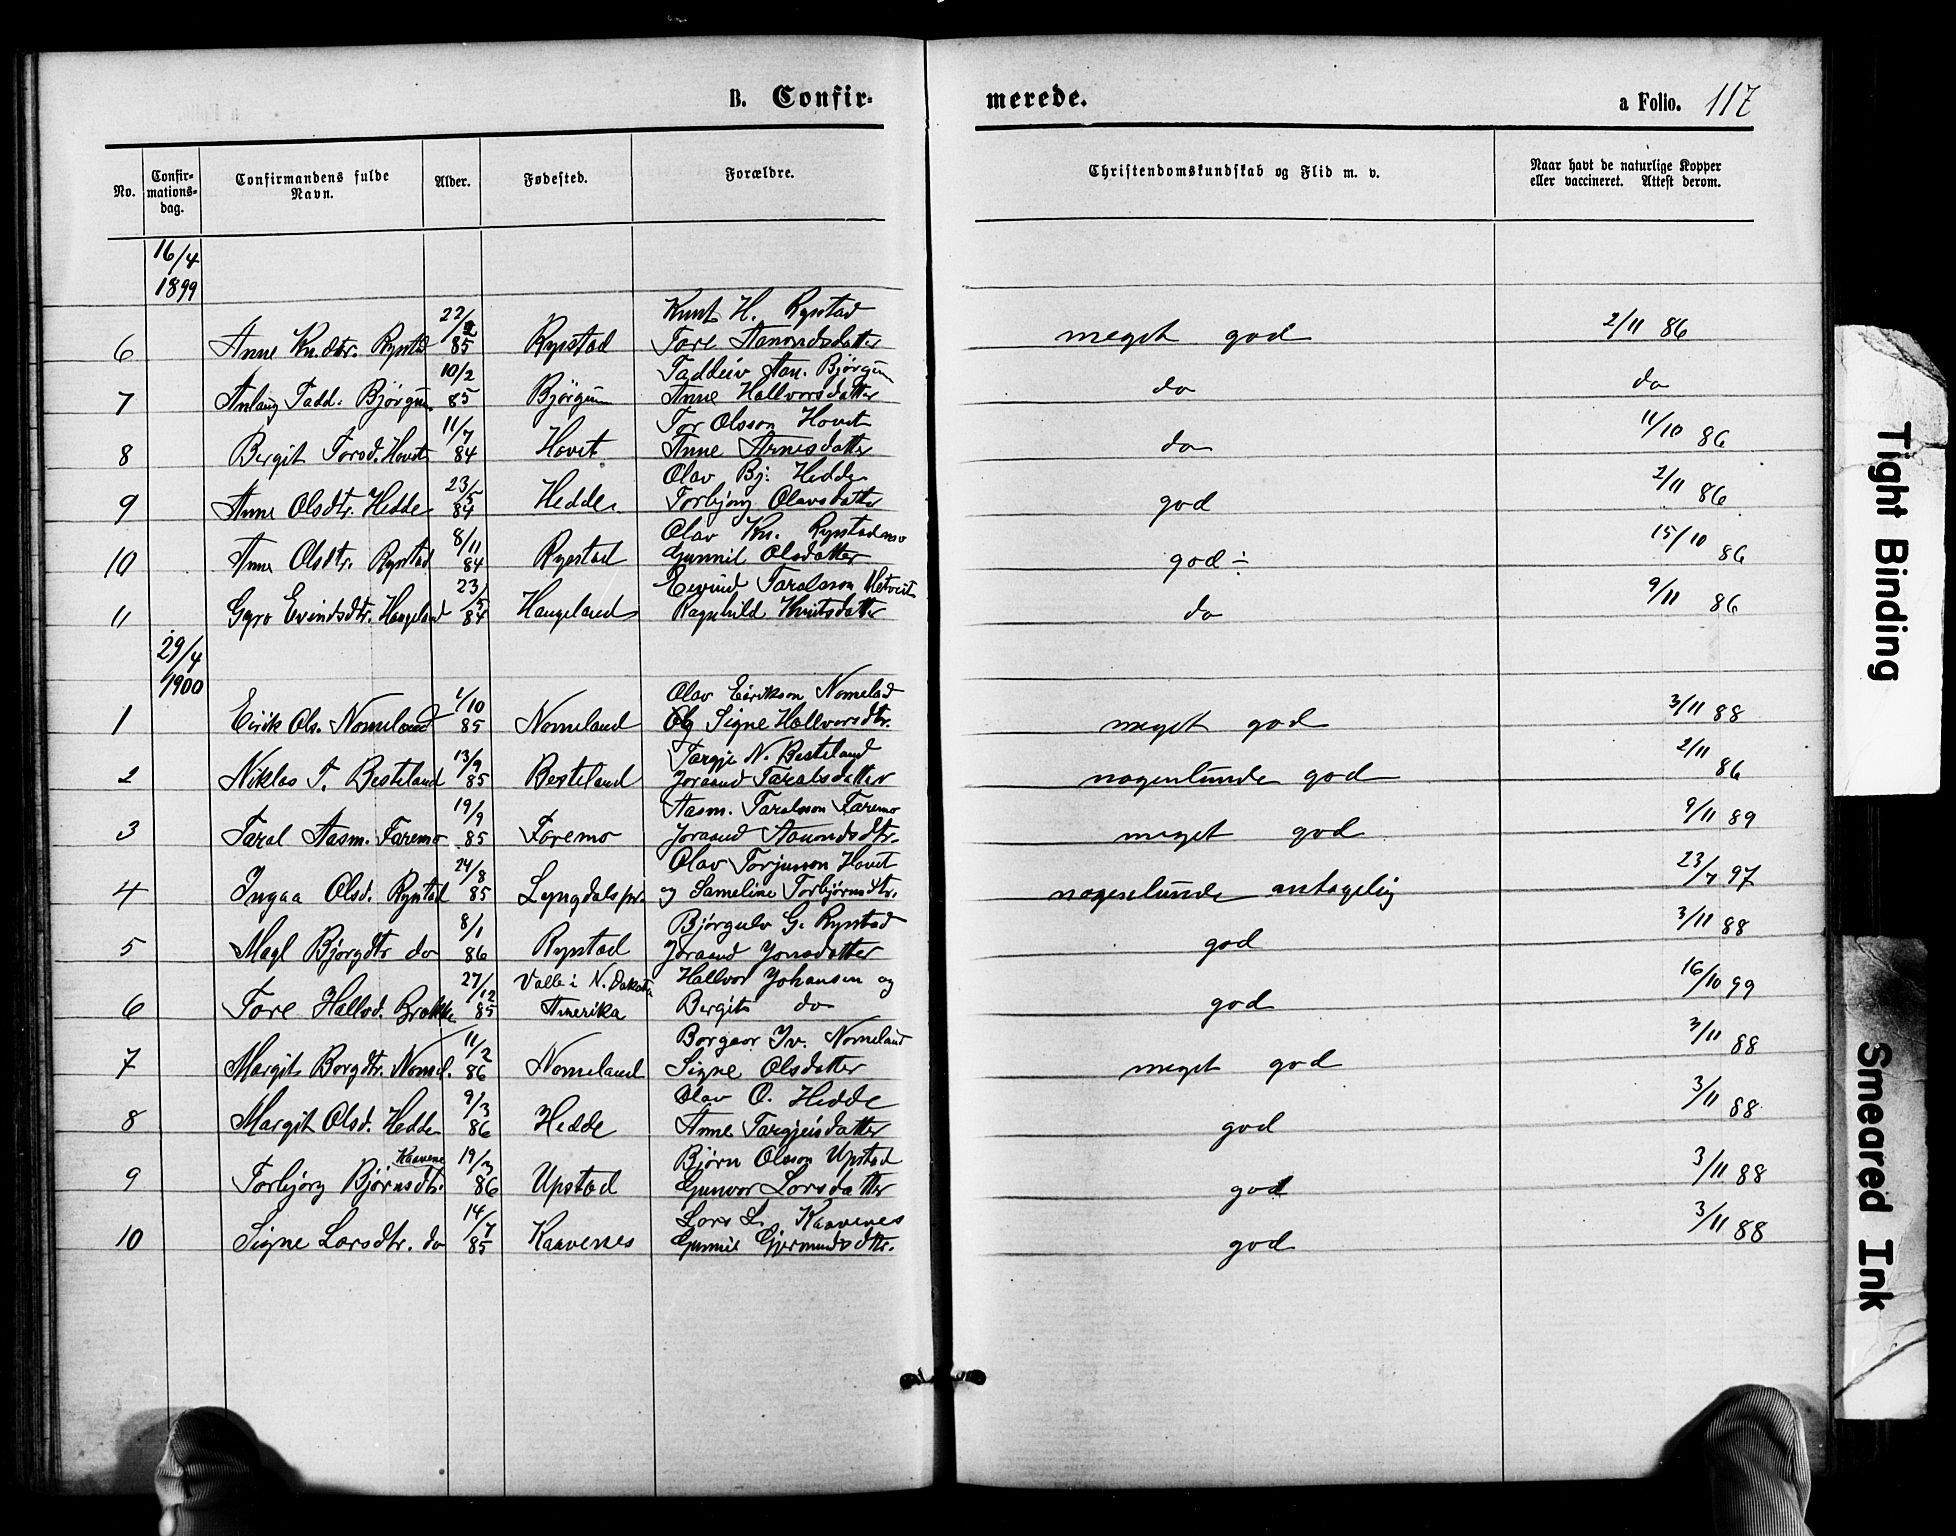 B. Confir-
merede.
a Folio. 117
No.
Confir-
mations-
dag.
Confirmandens fulde
Navn.
Alder.
Fødested.
Forældre.
Christendomskundskab og Flid m. v.
Naar havt de naturlige Kopper
eller vaccineret. Attest derom.
16/4
1899
22/2 Knut H. Rystad
6 Anne Kn.dtr. Rystd 85 Rystad Tore Aanondsdatter meget god 2/11 86
10/2 Taddeiv Aan. Bjørgum
7 Anlaug Tadd. Bjørgum 85 Bjørgum Anne Hallvorsdatter do do
11/7 Tor Olsson Hovet
8 Bergit Torsd. Hovet 84 Hovet Anne Arnesdatter do 11/10 86
23/5 Olav Bj. Hedde
9 Anne Olsdtr. Hedde 84 Hedde Torbjørg Olavsdatter god 2/11 86
8/11 Olav Kn. Rystadmo
10 Anne Olsdtr. Rystad 84 Rystad Gunnil Olsdatter god ÷ 15/10 86
23/5 Eivind Taralsson Hetveit
11 Gyro Evindsdtr. Haugeland 84 Haugeland Ragnhild Knutsdatter do 9/11 86
29/4
1900
1/10 Olav Eirikson Nomelad
1 Eirik Ols. Nomeland 85 Nomeland Og Signe Hallvorsdtr. meget god 3/11 88
13/9 Targje N. Besteland
2 Niklas T. Besteland 85 Besteland Joraand Taralsdatter nogenlunde god 2/11 86
19/9 Aasm. Taralsson Faremo
3 Taral Aasm. Faremo 85 Faremo Joraand Aanondsdtr. meget god 9/11 89
24/8 Olav Torjusson Hovet
4 Ingaa Olsd. Rystad 85 Lyngdals pr. og Sameline Torbjørnsdtr. nogenlunde antagelig 23/7 97
8/1 Bjørgulv G. Rystad
5 Magl Bjørgdtr do 86 Rystad Joraand Jonsdatter god 3/11 88
27/12 Valle i N. Dakota Hallvor Johansen og
6 Tore Hallvd. Brokke 85 Amerika Bergit do god 16/10 99
11/2 Borgaar Iv. Nomeland
7 Margit Borgdtr. Nomel. 86 Nomeland Signe Olsdatter meget god 3/11 88
9/3 Olav O. Hedde
8 Margit Olsd. Hedde 86 Hedde Anne Targjeisdatter god 3/11 88
Kaavenes 19/3 Bjørn Olsson Upstad
9 Torbjørg Bjørnsdtr. 86 Upstad Gunvor Larsdatter god 3/11 88
14/7 Lars L. Kaavenes
10 Signe Larsdtr. do 85 Kaavenes Gunnil Gjermundsdtr. god 3/11 88
Tight Binding
Smeared Ink